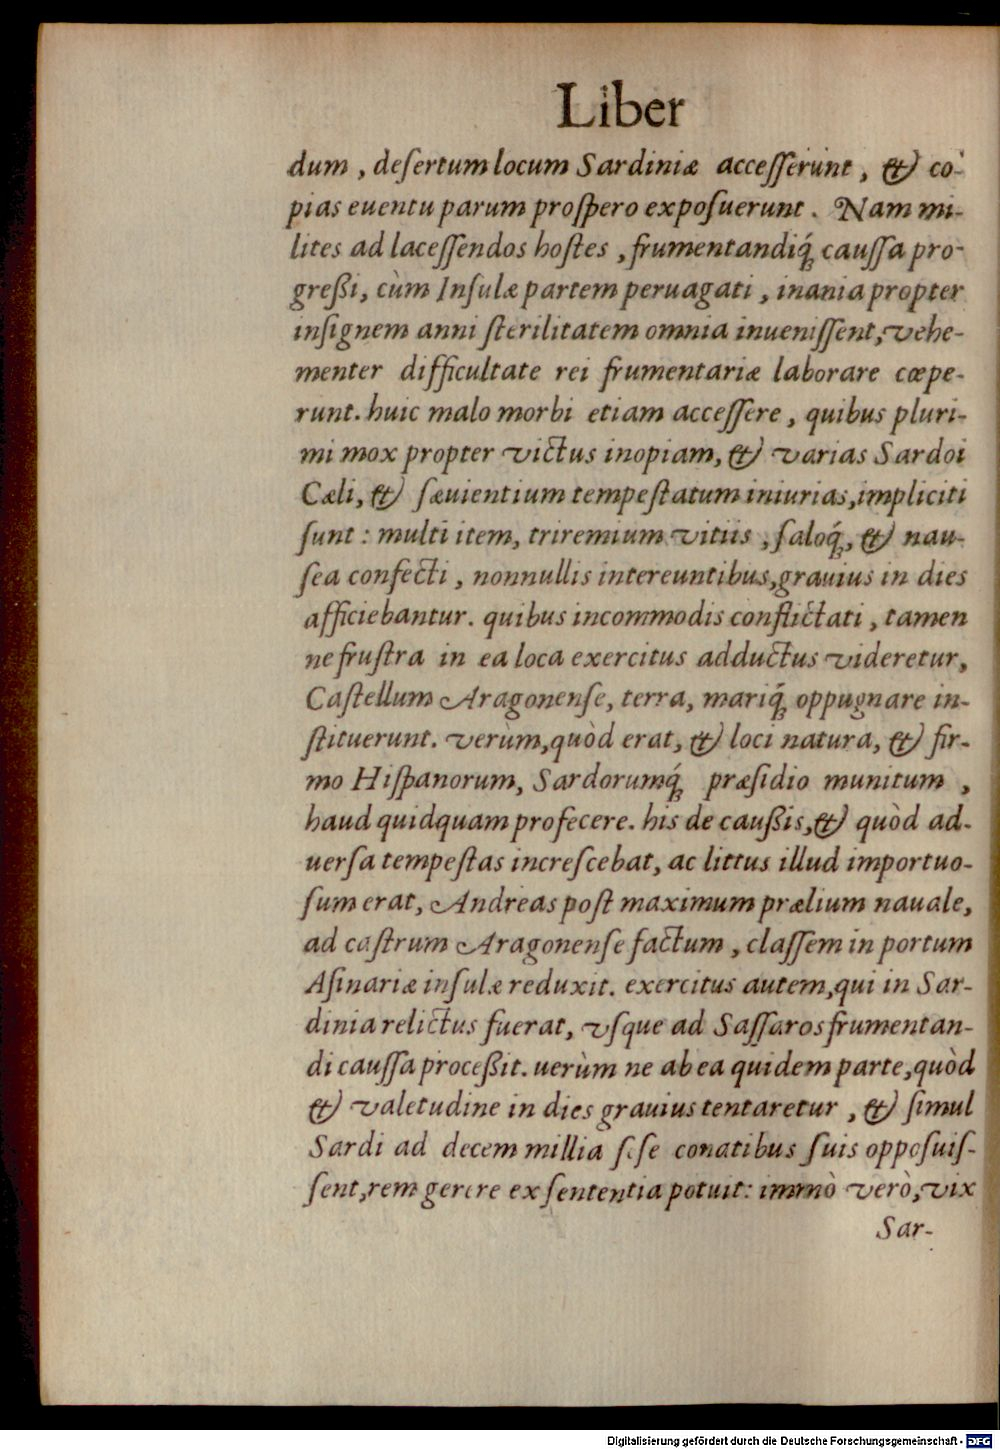 Liber
dum , deſertum locum Sardiniæ acceſſerunt , & co-
pias euentu parum proſpero expoſuerunt . Nam mi-
lites ad laceſſendos hoſtes , frumentandiq́; cauſſa pro-
greßi, cùm Inſulæ partem peruagati , inania propter
inſignem anni ſterilitatem omnia inueniſſent, vehe-
menter difficultate rei frumentariæ laborare cœpe-
runt. huic malo morbi etiam acceſſere , quibus pluri-
mi mox propter victus inopiam, & varias Sardoi
Cæli, & ſæuientium tempeſtatum iniurias, impliciti
ſunt : multi item, triremium vitiis , ſaloq́;, & nau-
ſea confecti , nonnullis intereuntibus, grauius in dies
afficiebantur. quibus incommodis conflictati , tamen
ne fruſtra in ea loca exercitus adductus videretur,
Caſtellum Aragonenſe, terra, mariq́; oppugnare in-
ſtituerunt. verum, quòd erat, & loci natura, & fir-
mo Hiſpanorum, Sardorumq́; præſidio munitum ,
haud quidquam profecere. his de caußis, & quòd ad-
uerſa tempeſtas increſcebat, ac littus illud importuo-
ſum erat, Andreas poſt maximum prælium nauale,
ad caſtrum Aragonenſe factum , claſſem in portum
Aſinariæ inſulæ reduxit. exercitus autem, qui in Sar-
dinia relictus fuerat, vſque ad Saſſaros frumentan-
di cauſſa proceßit. uerùm ne ab ea quidem parte, quòd
& valetudine in dies grauius tentaretur , & ſimul
Sardi ad decem millia ſeſe conatibus ſuis oppoſuiſ-
ſent, rem gerere ex ſententia potuit: immò verò, vix
Sar-
Digitalisierung gefördert durch die Deutsche Forschungsgemeinschaft - DFG